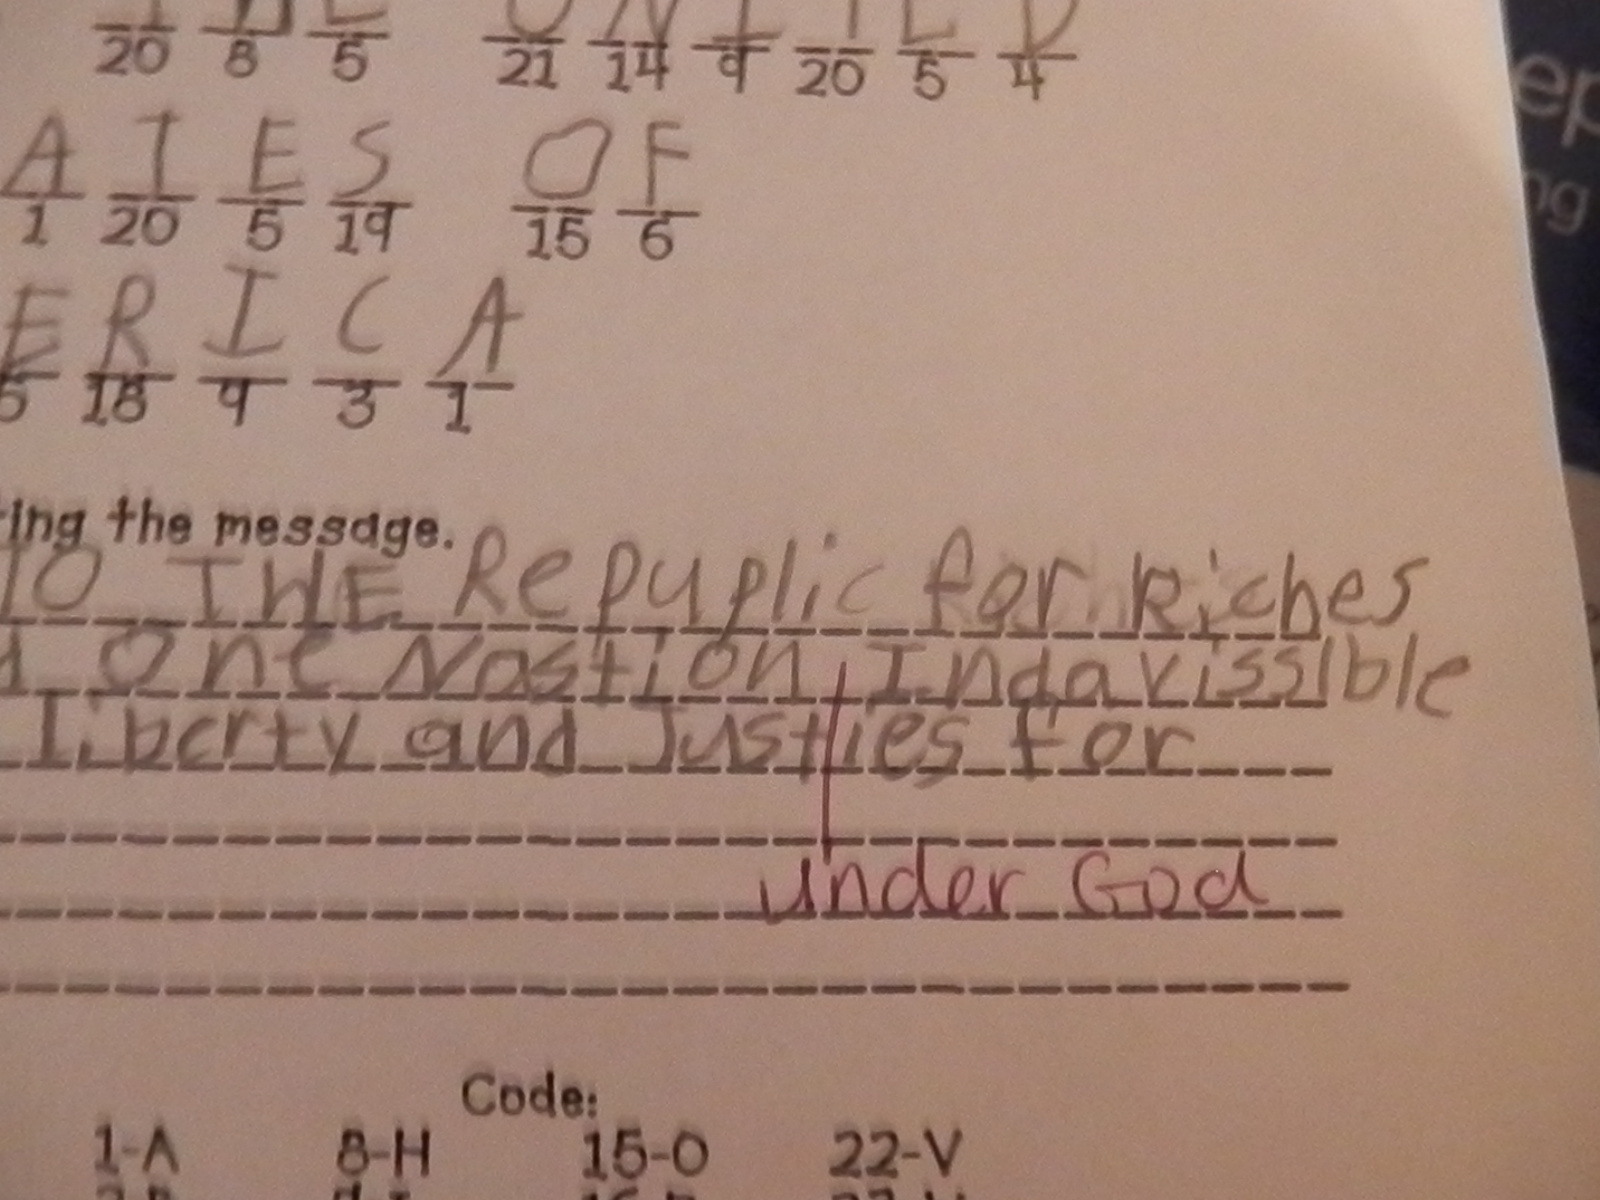 THE UNITED
20 8 5 21 14 9 20 5 4
ATES OF
1 20 5 19 15 6
ERICA
5 18 9 3 1
ting the message.
TO THE Repuplic for Riches
d One Nastion Indavissible
Liberty and Justies for
under God
Code:
1-A 8-H 15-O 22-V
ep
ng